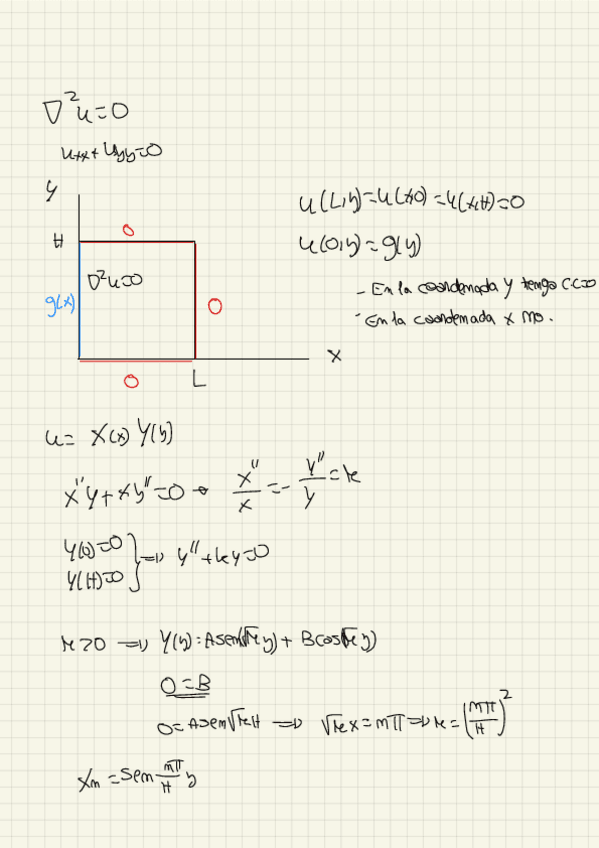 ∇²u=0
u_xx+u_yy=0
y
H
0
∇²u=0
g(x)
0
0
L
x
u(L,y)=u(x,0)=u(x,H)=0
u(0,y)=g(y)
- En la coordenada y tengo CC=0
- En la coordenada x no.
u= X(x) Y(y)
x''y+xy''=0 → x''/x =- y''/y =k
y(0)=0
y(H)=0 } ⇒ y''+ky=0
k>0 ⇒ Y(y): Asen(√k y)+ Bcos(√k y)
0=B
0=Asen√k H ⇒ √k x=nπ ⇒ k=(nπ/H)²
Xn =sen nπ/H y